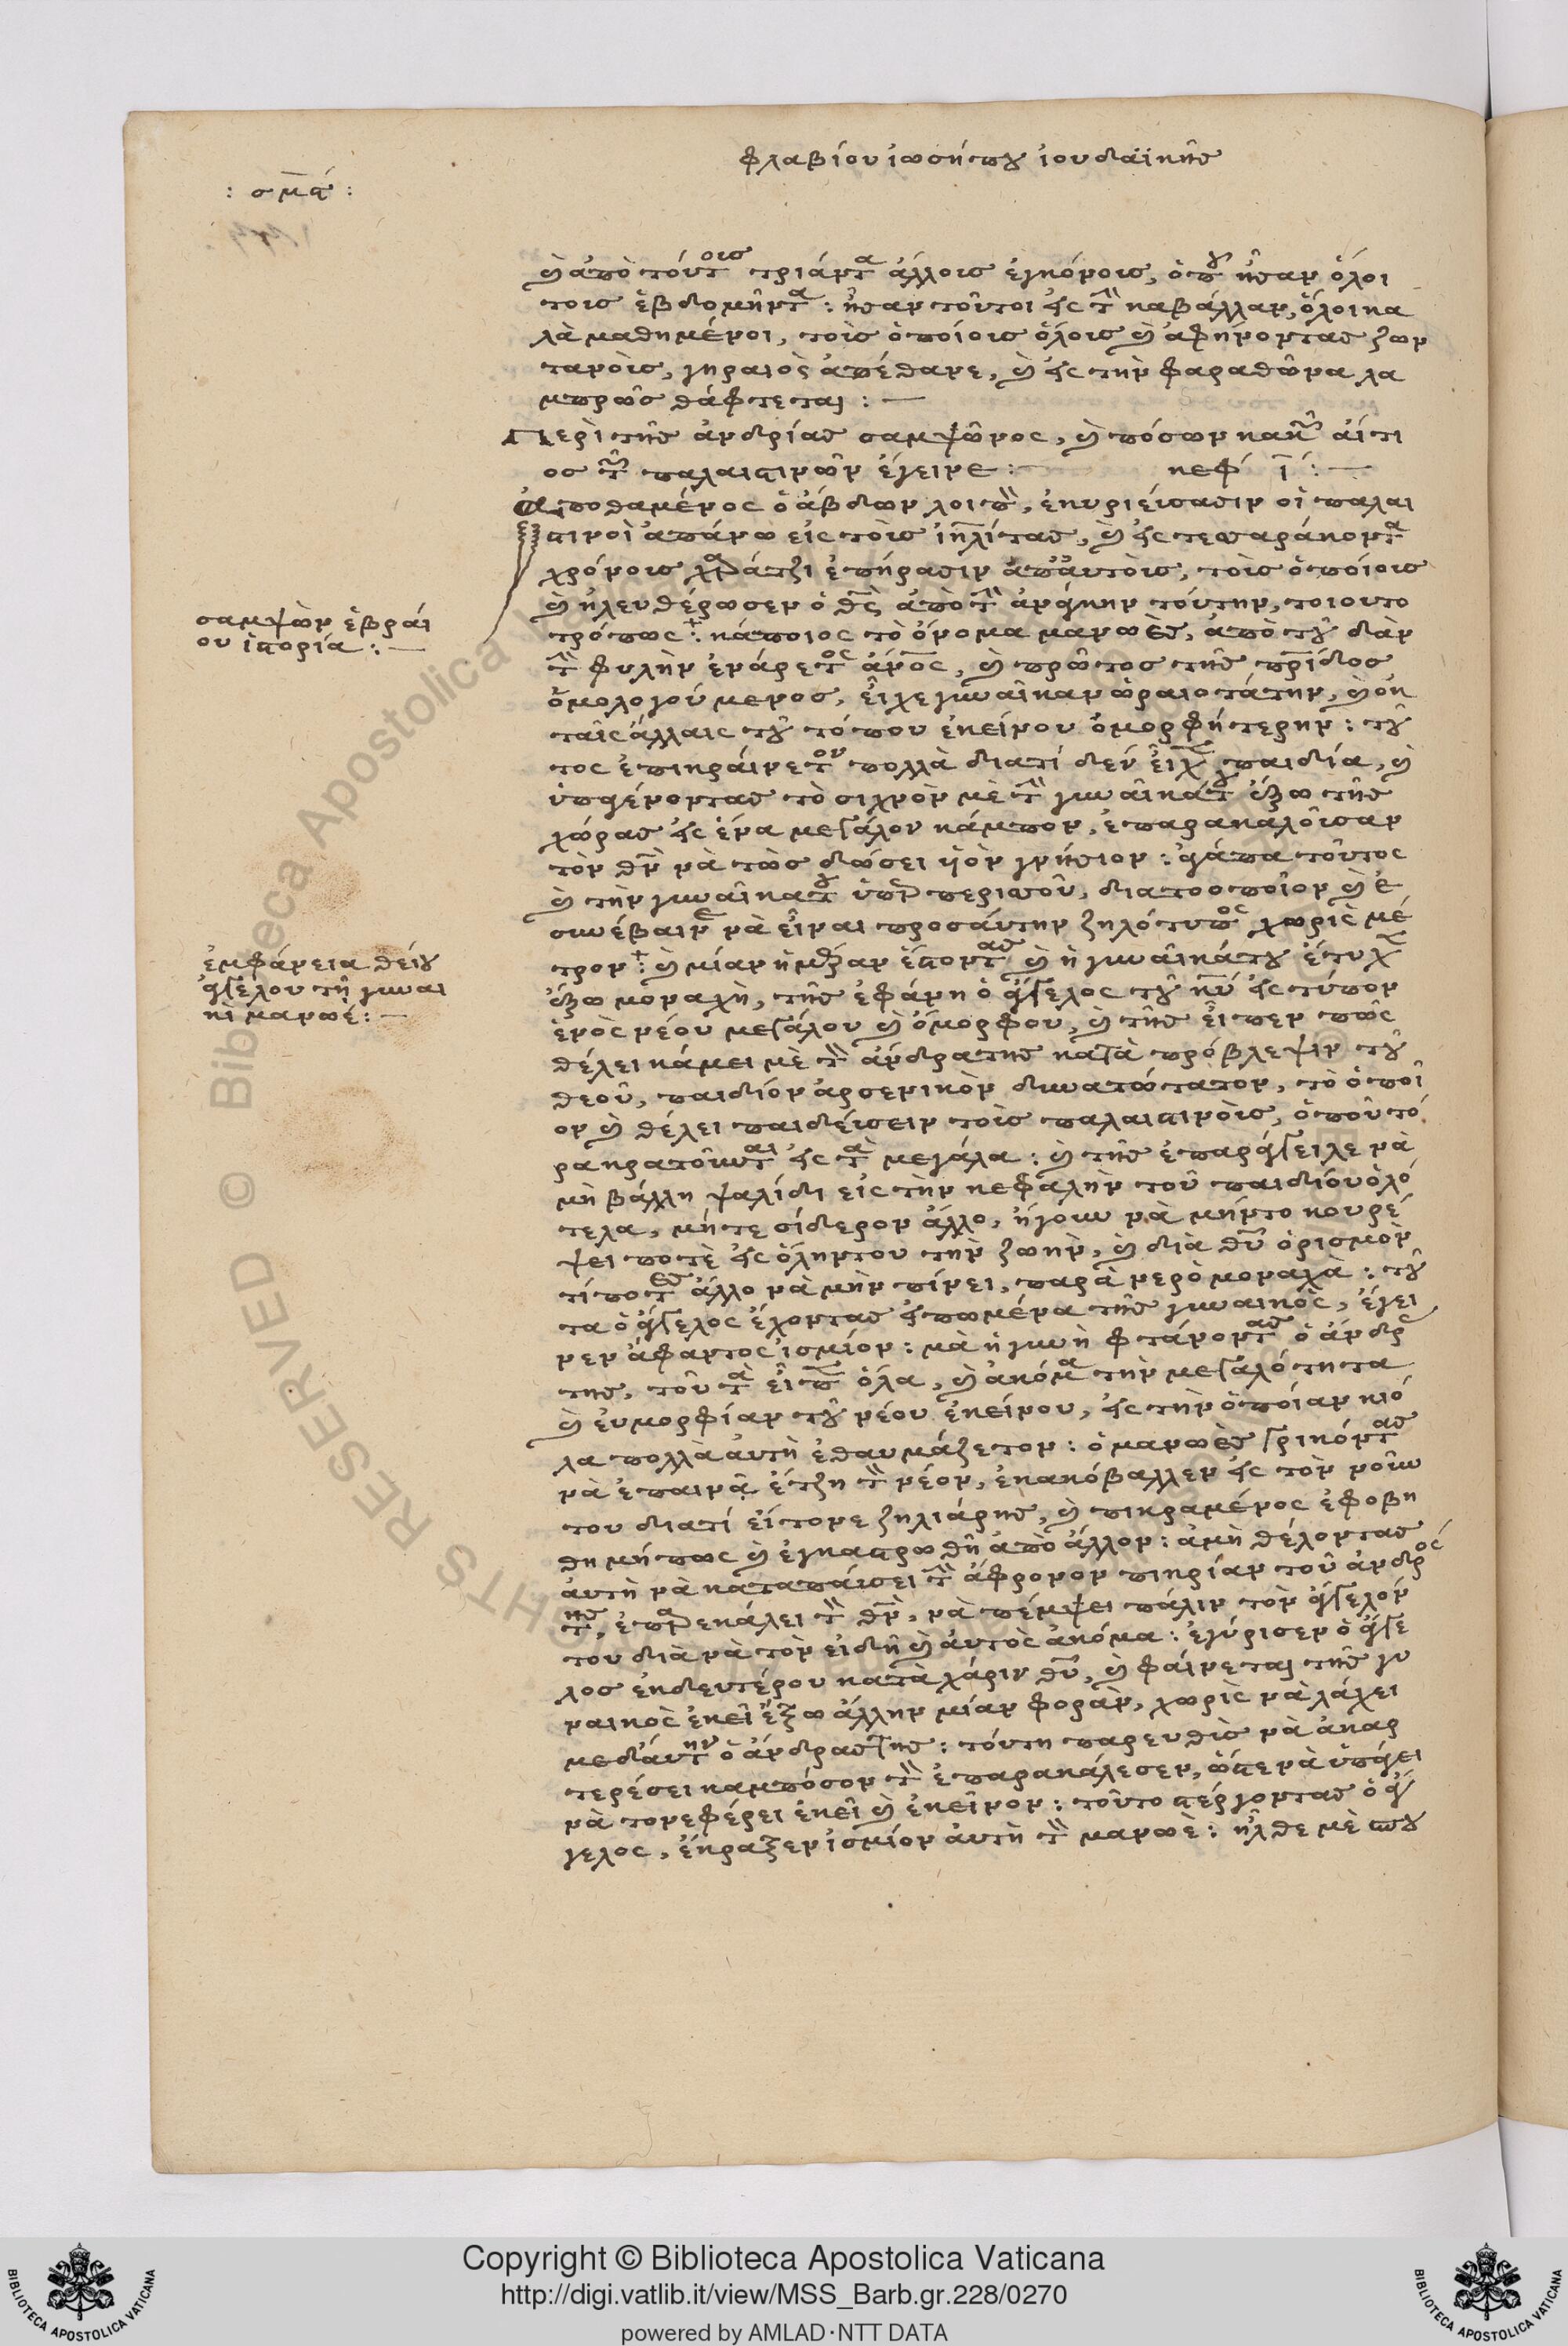 φλαβίου ἰωσήπου ἰουδαϊκῆς
: σμα :
καὶ ἀπὸ τούτοις τριάντα ἄλλοις ἐγκόνοις, ὁποῦ ἦσαν ὅλοι
τοις ἑβδομῆντα : ἦσαν τοῦτοι εἰς τὸ καβάλλαν, ὅλοι κα
λὰ μαθημένοι, τοὶς ὁποίοις ὅλοις καὶ ἀφήνοντας ζων
τανοὶς, γηραιὸς ἀπέθανε, καὶ εἰς τὴν φαραθῶνα λα
μπρῶς θάφτεται : —
Περὶ τῆς ἀνδρίας σαμψῶνος, καὶ πόσων κακῶν αἴτι
ος τῶν παλαιστινῶν ἔγεινε : — κεφ ι : —
Αποθαμένος ὁ ἀβδων λοιπὸν, ἐκυριείσασιν οἱ παλαι
στινοὶ ἀπάνω εἰς τοὶς ἰηλίτας, καὶ εἰς τεσσαράκοντα
χρόνοις χαράτζι ἐπήρασιν ἀπαυτοὶς, τοὶς ὁποίοις
καὶ ἠλευθέρωσεν ὁ θς ἀπὸ τὴν ἀνάγκην τούτην, τοιουτο
τρόπως : κάποιος τὸ ὄνομα μανωὲς, ἀπὸ τοῦ δὰν
τὴν φυλὴν ἐνάρετος ἄνος, καὶ πρῶτος τῆς πρίδος
ὁμολογούμενος, εἶχε γυναῖκαν ὡραιοτάτην, καὶ ἐκ
ταῖς ἄλλαις τοῦ τόπου ἐκείνου ὀμορφήτερην : τοῦ
τος ἐπικραίνετον πολλὰ διατί δεν εἶχε παιδία, καὶ
ὑπαγένοντας τὸ σιχνὸν μὲ τὴν γυναῖκάτου ἔξω τῆς
χώρας εἰς ἕνα μεγάλον κάμπον, ἐπαρακαλοῖσαν
τὸν θν νὰ τὼς δώσει ὑὸν γνήσιον : ἀγάπα τοῦτος
καὶ τὴν γυναῖκατου ὑπὲρ περισσοῦ, διατοοποῖον καὶ ἐ
συνέβαινε νὰ εἶναι προσάυτην ζηλότυπος χωρὶς μέ
τρον : καὶ μίαν ἡμέραν ἔστοντας καὶ ἡ γυναῖκάτου ἔτυχε
ἔξω μοναχὴ, τῆς ἐφάνη ὁ ἄγγελος τοῦ κυ εἰς τύπον
ἑνὸς νέου μεγάλου καὶ ὄμορφου, καὶ τῆς εἶπεν πῶς
θέλει κάμει μὲ τὸν ἄνδρατης κατὰ πρόβλεψιν τοῦ
θεοῦ, παιδίον ἀρσενικὸν δυνατώτατον, τὸ ὁποῖ
ον καὶ θέλει παιδεύσειν τοὶς παλαιστινοὶς, ὁποῦ τό
ρα κρατοῖνται εἰς τὰ μεγάλα : καὶ τῆς ἐπαράγγειλε νὰ
μὴ βάλλη ψαλίδι εἰς τὴν κεφαλὴν τοῦ παιδίου ὁλό
τελα, μήτε σίδερον ἄλλο, ἤγουν νὰ μήντο κουρέ
ψει ποτὲ εἰς ὅληντου τὴν ζωὴν, καὶ διὰ θυ ὁρισμὸν
τίποτες ἄλλο νὰ μὴν πίνει, παρὰ νερὸ μοναχὰ : τοῦ
τα ὁ ἄγγελος ἔχοντας εἰπωμένα τῆς γυναικὸς, ἔγει
νεν ἄφαντος ἰσμίον : μὰ ἡ γυνὴ φτάνοντας ὁ ἄνδρας
της, τοῦ τὰ εἶπε ὅλα, καὶ ἀκόμα τὴν μεγαλότητα
καὶ εὐμορφίαν τοῦ νέου ἐκείνου, εἰς τὴν ὁποίαν κιό
λα πολλὰ ἀυτὴ ἐθαυμάζετον : ὁ μανωὲς γρικόντας
νὰ ἐπαινᾶ ἔτζη τὸν νέον, ἐκακόβαλλεν εἰς τὸν νοῖν
του διατί εἴτονε ζηλιάρης, καὶ πικραμένος ἐφοβη
θη μήπως καὶ ἐγκαστρωθῆ ἀπὸ ἄλλον : ἀμὴ θέλοντας
ἀυτὴ νὰ καταπάυσει τὴν ἄφρονον πικρίαν τοῦ ἀνδρός
της, ἐπαρεκάλει τὸν θν, νὰ πέμψει πάλιν τὸν ἄγγελόν
του διὰ νὰ τὸν εἰδῆ καὶ ἀυτὸς ἀκόμα : ἐγύρισεν ὁ ἄγγε
λος ἐκδευτέρου κατὰ χάριν θυ, καὶ φαίνεται τῆς γυ
ναικὸς ἐκεῖ ἔξω ἄλλην μίαν φορὰν, χωρὶς νὰ λάχει
μεδάυτην ὁ ἄνδραστης : τόυτη παρευθὶς νὰ ἀκαρ
τερέσει καμπόσον τὸν ἐπαρακάλεσεν, ὥστε νὰ ὑπάγει
νὰ τονεφέρει ἐκεῖ καὶ ἐκεῖνον : τοῦτο στέργοντας ὁ ἄγ
γελος, ἔκραξεν ἰσμίον ἀυτὴ τὸν μανωὲ : ἦλθε μὲ σπου
σαμψὼν ἑβραί
ου ἱστορία : —
ἐμφάνεια θείου
ἀγγέλου τῆ γυναι
κὶ μανωέ : —
Copyright © Biblioteca Apostolica Vaticana
http://digi.vatlib.it/view/MSS_Barb.gr.228/0270
powered by AMLAD·NTT DATA